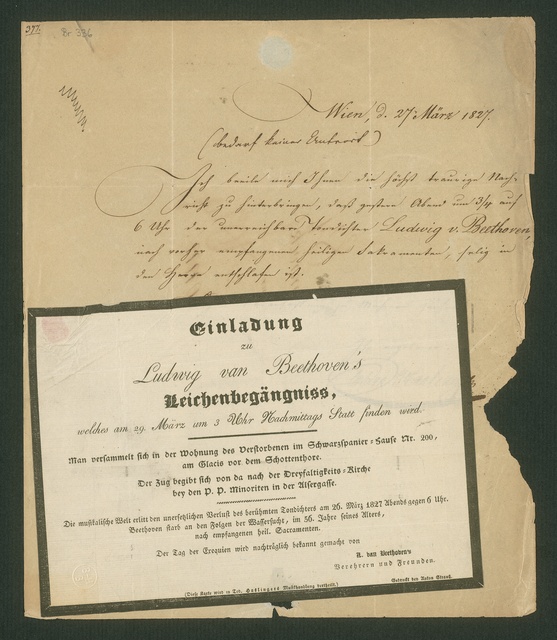 377.
Br. 336
Wien, d. 27 März 1827.
(bedarf keiner Antwort)
Ich beeile mich Ihnen die höchst traurige Nach-
richt zu hinterbringen, daß gestern Abend um 3/4 auf
6 Uhr der unerreichbare Tondichter Ludwig v. Beethoven,
nach vorher empfangenen heiligen Sakramenten, selig in
dem Herrn entschlafen ist.
Einladung
zu
Ludwig van Beethoven's
Leichenbegängniss,
welches am 29. März um 3 Uhr Nachmittags Statt finden wird.
Man versammelt sich in der Wohnung des Verstorbenen im Schwarzspanier-Hause Nr. 200,
am Glacis vor dem Schottenthore.
Der Zug begibt sich von da nach der Dreyfaltigkeits-Kirche
bey den P. P. Minoriten in der Alsergasse.
Die musikalische Welt erlitt den unersetzlichen Verlust des berühmten Tondichters am 26. März 1827 Abends gegen 6 Uhr.
Beethoven starb an den Folgen der Wassersucht, im 56. Jahre seines Alters,
nach empfangenen heil. Sacramenten.
Der Tag der Exequien wird nachträglich bekannt gemacht von
L. van Beethoven's
Verehrern und Freunden.
(Diese Karte wird in Tob. Haslingers Musikhandlung vertheilt.)
Gedruckt bey Anton Strauß.